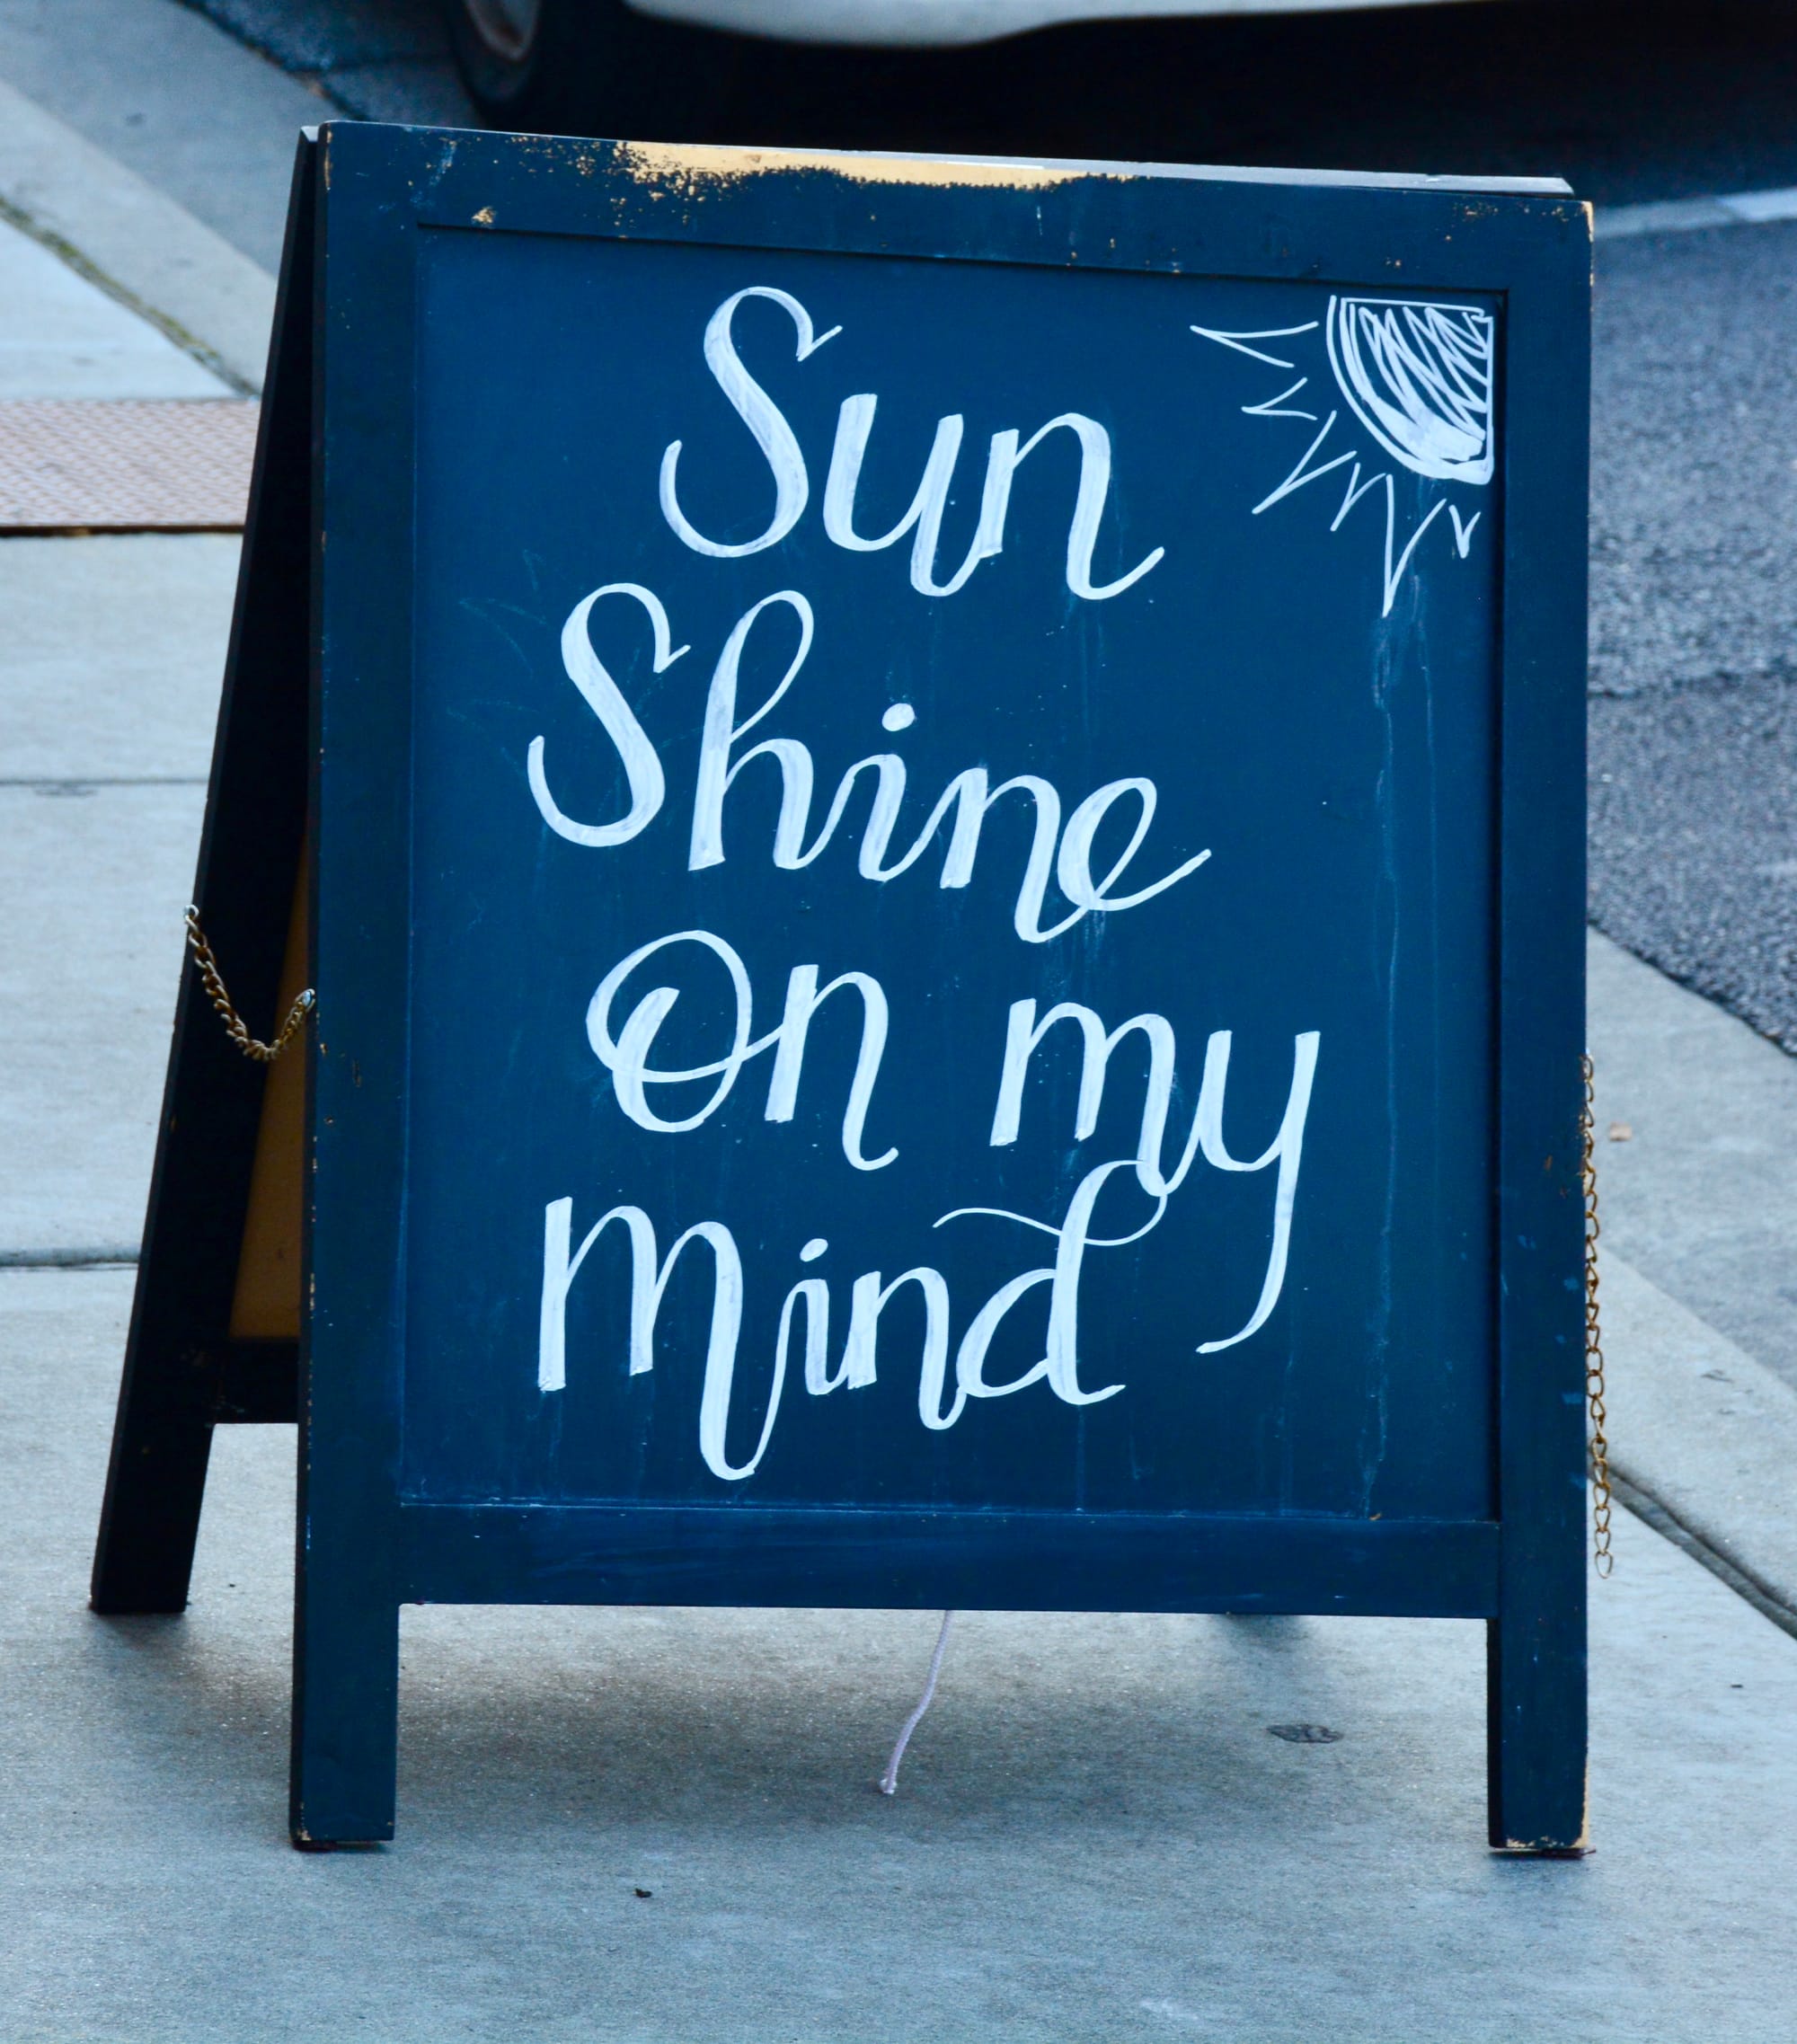 Sun
Shine
On my
Mind